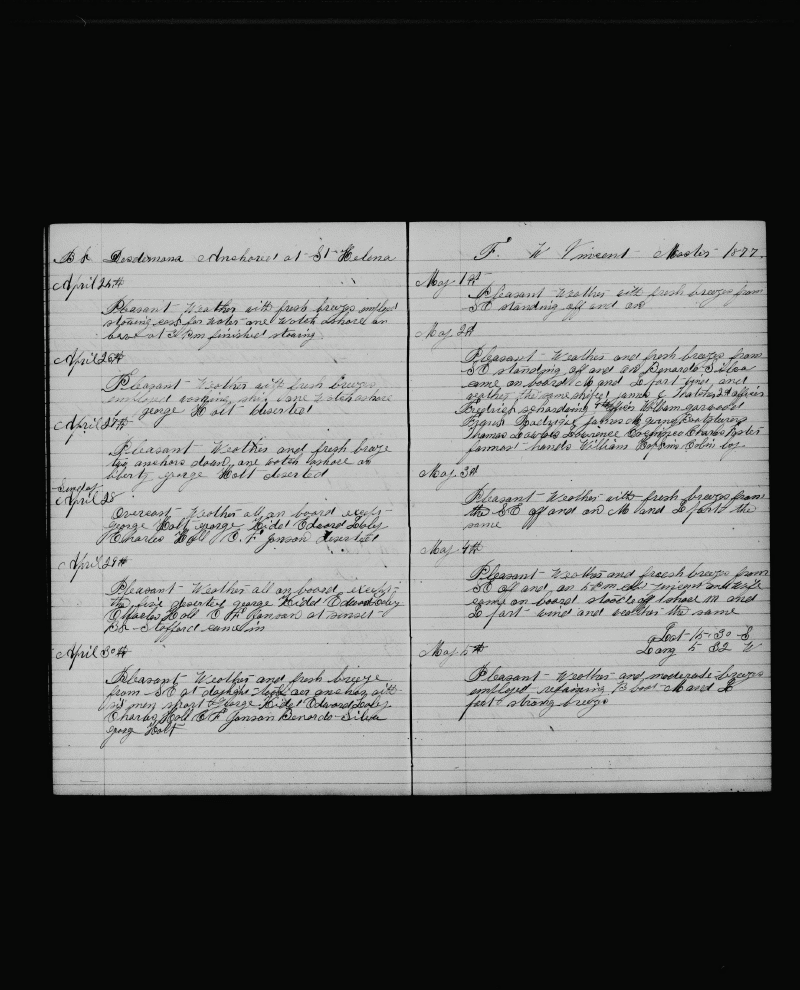 Bk Desdemona Anchored at St Helena
April 25th
Pleasant Weather with fresh breezes employed
stowing cask for water one watch ashore on
boat at 3 P.m finished stowing
April 26th
Pleasant Weather with fresh breezes
employed ship one watch ashore
george Holt deserted
April 27th
Pleasant Weather and fresh breeze
anchors down one watch ashore on
liberty george Holt deserted
Sunday
April 28
Overcast Weather all on board except
george Holt george Kidd Edward
Charles Holl C. F. Jonson deserted
April 29th
Pleasant Weather all on board except
the five deserted george Kidd Edward
Charles Holl C F at sunset
Bk Stafford came in
April 30th
Pleasant Weather and fresh breeze
from SE at daylight took our anchor with
six men short George Kidd Edward
Charles Holl C F Jonson Benardo Silva
gorge Holt
F. W Vincent Master 1877.
May 1st
Pleasant Weather with fresh breezes from
SE standing off and on
May 2d
Pleasant Weather and fresh breezes from
SE standing off and on Benardo Silva
came on board M and L part wind and
weather the same shiped 2d officer
4th officer William
Thomas Lawrence Charles
farmost hands William boy
May 3d
Pleasant Weather with fresh breezes from
the SE off and on M and L part the
same
May 4th
Pleasant Weather and freesh breezes from
SE off and on 5 P.m and wife
came on board stood off shore M and
L part wind and weather the same
Lat 15-30 S
Long 5 32 W
May 5th
Pleasant Weather and moderate breezes
employed repairing B boat M and L
part strong breezes